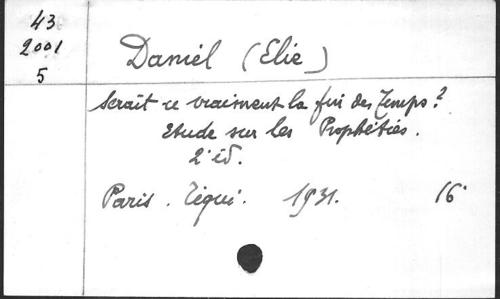 43
2001
5
Daniel (Elie)
Serait-ce vraiment la fin des Temps?
Etude sur les Prophéties.
2e éd.
Paris. Téqui. 1931. 16°